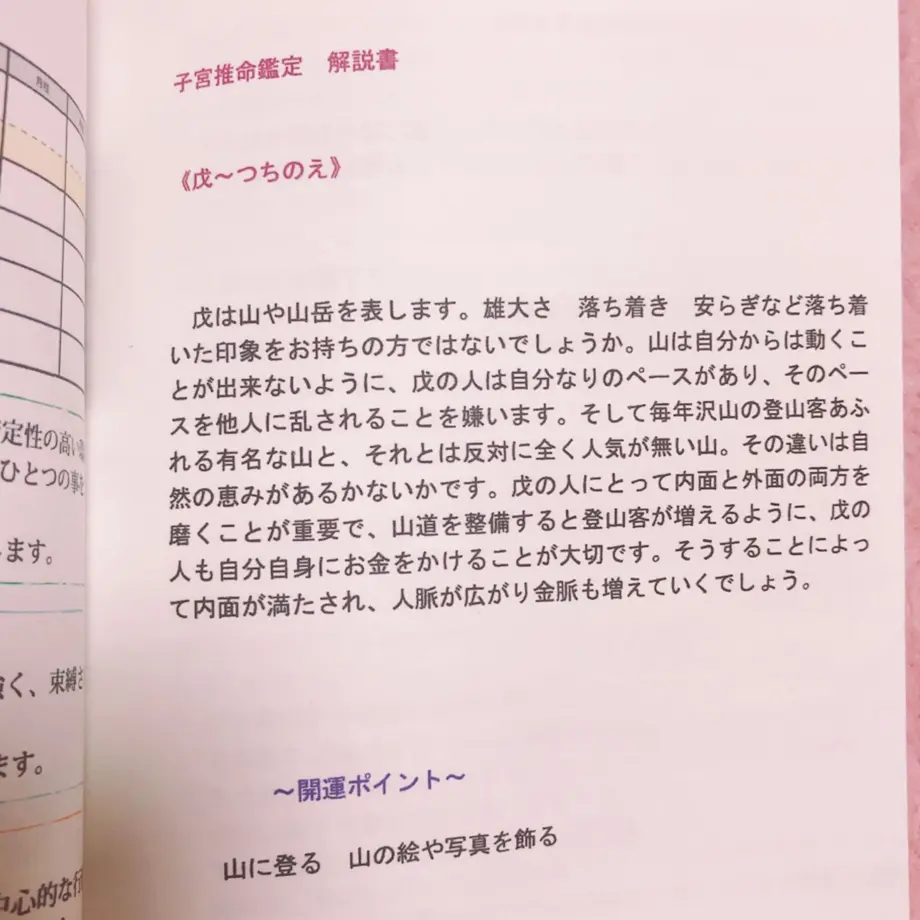 月柱
定性の高い
ひとつの事を
します。
強く、束縛さ
ます。
中心的な行
子宮推命鑑定　解説書
《戊～つちのえ》
戊は山や山岳を表します。雄大さ　落ち着き　安らぎなど落ち着
いた印象をお持ちの方ではないでしょうか。山は自分からは動くこ
とが出来ないように、戊の人は自分なりのペースがあり、そのペー
スを他人に乱されることを嫌います。そして毎年沢山の登山客あふ
れる有名な山と、それとは反対に全く人気が無い山。その違いは自
然の恵みがあるかないかです。戊の人にとって内面と外面の両方を
磨くことが重要で、山道を整備すると登山客が増えるように、戊の
人も自分自身にお金をかけることが大切です。そうすることによっ
て内面が満たされ、人脈が広がり金脈も増えていくでしょう。
～開運ポイント～
山に登る　山の絵や写真を飾る